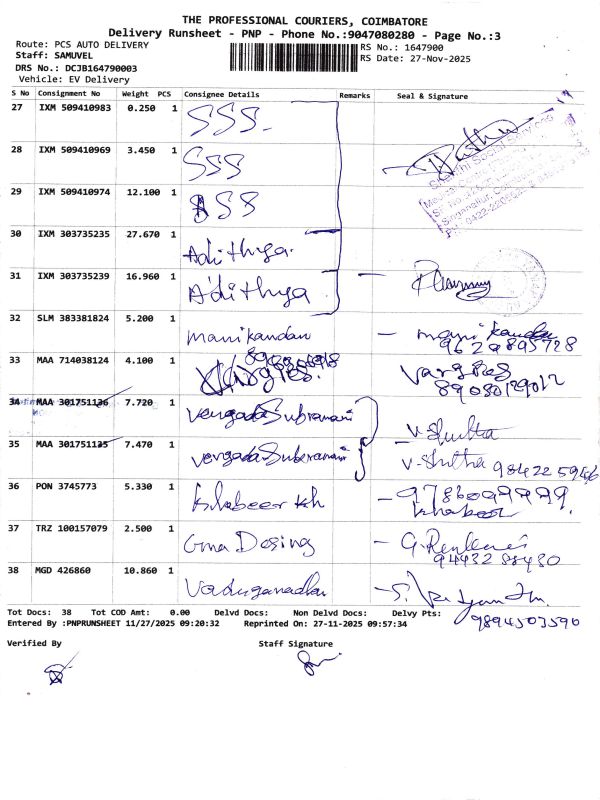 THE PROFESSIONAL COURIERS, COIMBATORE
Delivery Runsheet - PNP - Phone No.:9047080280 - Page No.:3
Route: PCS AUTO DELIVERY
RS No.: 1647900
Staff: SAMUVEL
RS Date: 27-Nov-2025
DRS No.: DCJB164790003
Vehicle: EV Delivery
S No Consignment No Weight PCS Consignee Details Remarks Seal & Signature
27 IXM 509410983 0.250 1 SSS
28 IXM 509410969 3.450 1 SSS
29 IXM 509410974 12.100 1 SSS
30 IXM 303735235 27.670 1 Adithya
31 IXM 303735239 16.960 1 Adithya
32 SLM 383381824 5.200 1 manikandan - manikandan
9629895728
33 MAA 714038124 4.100 1 Vargies. Vargies
89080129012
34 MAA 301751136 7.720 1 vengadaSubramani
35 MAA 301751135 7.470 1 vengadaSubramani
36 PON 3745773 5.330 1 khabeer kh
37 TRZ 100157079 2.500 1
38 MGD 426860 10.860 1 Vaduganadhan
9894503590
Tot Docs: 38 Tot COD Amt: 0.00 Delvd Docs: Non Delvd Docs: Delvy Pts:
Entered By :PNPRUNSHEET 11/27/2025 09:20:32 Reprinted On: 27-11-2025 09:57:34
Verified By Staff Signature